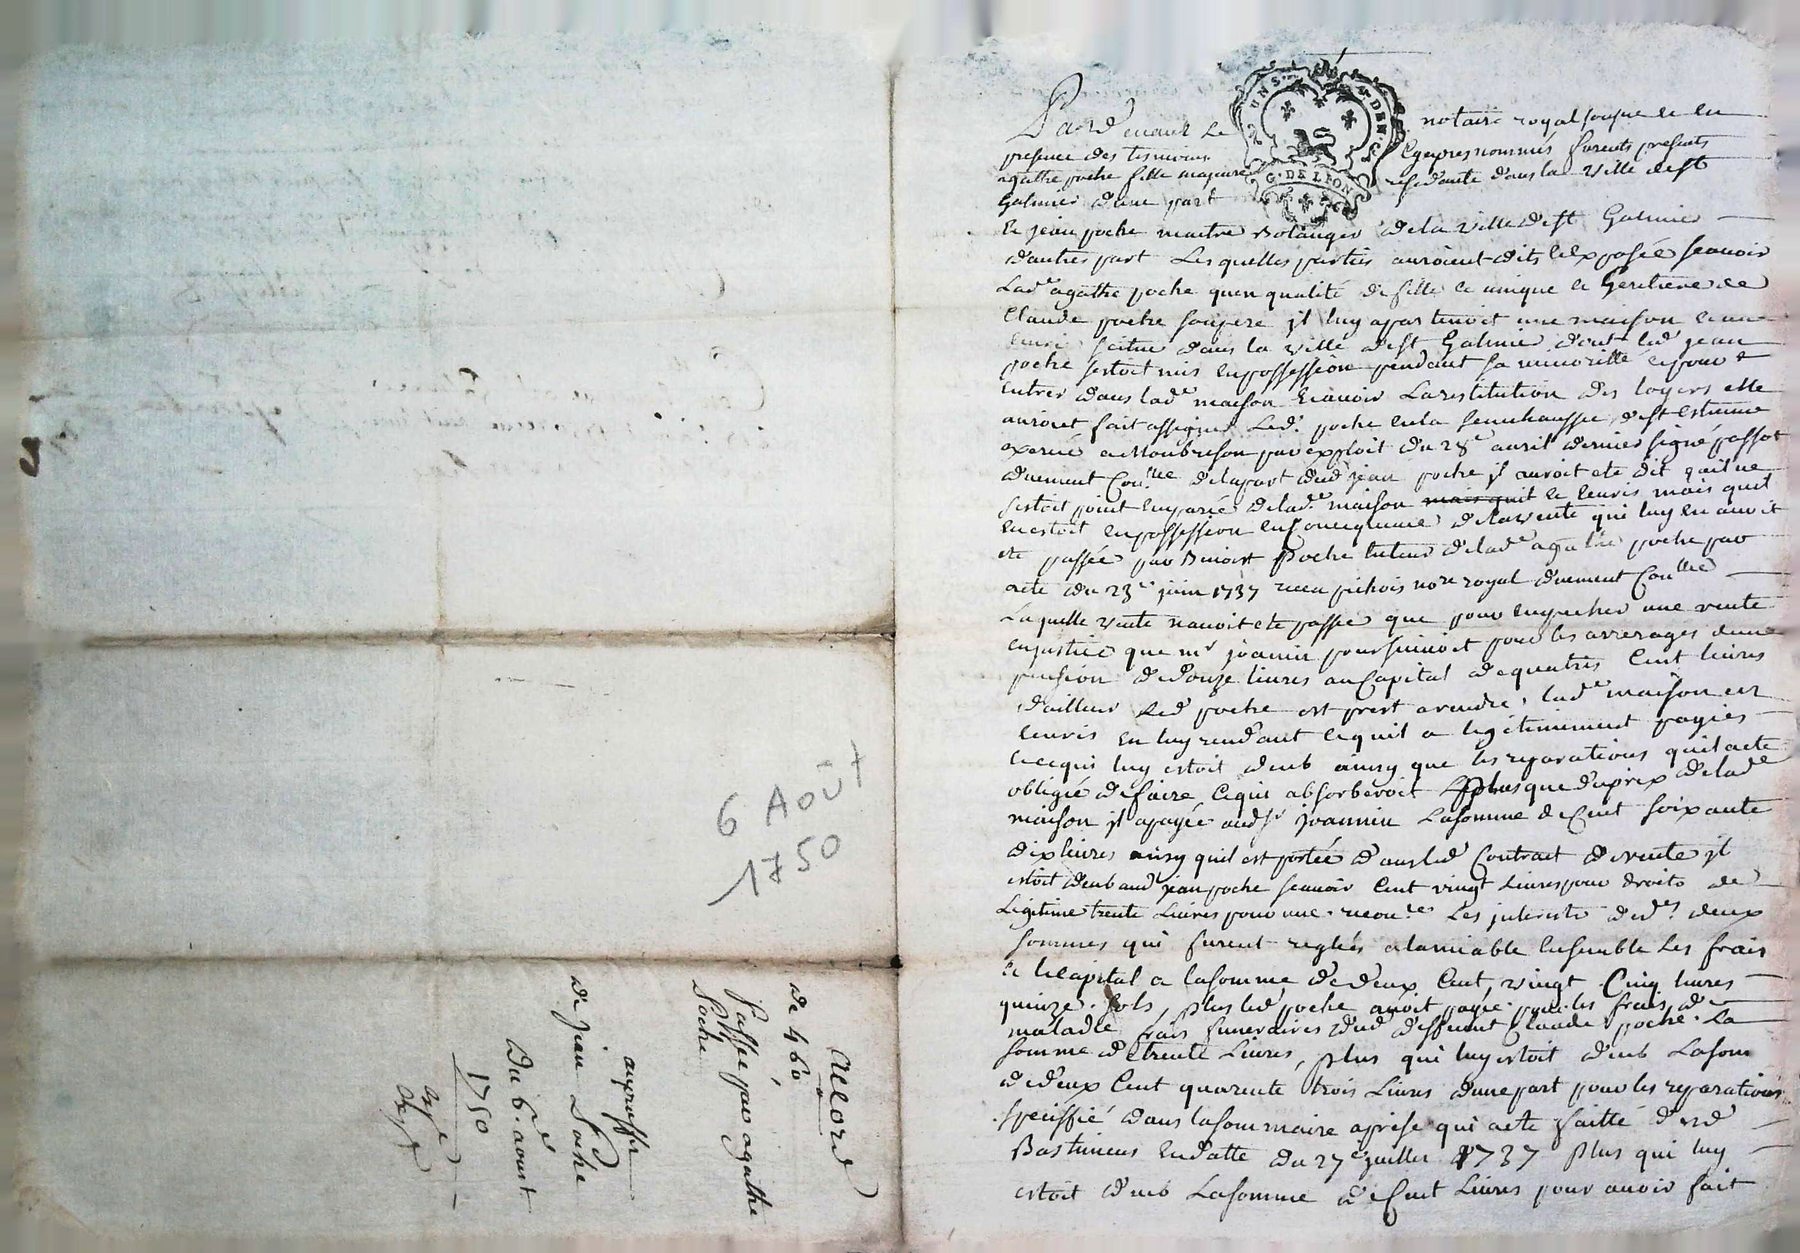 6 Août
1750
accord
de 460
Passé par agathe
Poche
au proffit
de jean Poche
Du 6.e aoust
1750
Pardevant le notaire royal soussigné et en
presence des tesmoins cy apres nommés furents presents
agathe poche fille majeure residante dans la ville de st
Galmier d'une part
Et jean poche maitre Bolanger de la ville de st Galmier
d'autres part Lesquelles parties auroient dits et exposée scavoir
Lad.e agathe poche quen qualité de fille et unique et heritiere de
Claude poche son pere il luy apartenoit une maison et une
scitue dans la ville de st Galmier dont led jean
poche sestoit mis en possession pendant sa minorité et pour
entrer dans lad.e maison et avoir La restitution des loyers elle
auroit fait assigner Led. poche en la senechaussee de st estienne
exercée a Monbrison par exploit du 28.e avril dernier signé passot
duement Con.llé de la part dud jean poche il auroit ete dit quil ne
sestoit point emparée de lad.e maison mais quil et leuvis mais quil
en estoit en possession en Consequence de la vente qui luy en avoit
ete passée par Benoist Poche tuteur de lad.e agathe poche par
acte du 23.e juin 1737 receu pichois no.re royal duement Con.llé
Laquelle vente navoit ete passée que pour empecher une vente
en justice que m.r joannin poursuivoit pour les arrerages dune
pension de douze livres au Capital de quatres Cent livres
d'ailleur led poche est prest a rendre lad.e maison et
leuvis en luy rendant ce quil a legitimement payies
et ce qui luy estoit deub ainsy que les reparations quil a ete
obligée de faire ce qui absorberoit plus que du prix de lad.e
maison il a payée aud s.r joannin La somme de Cent soixante
dix livres ainsy quil est portée dans led Contract de vente il
estoit deub aud jean poche scavoir Cent vingt Livres pour droits de
Legitime trente Livres pour une Les interets desd. deux
sommes qui furent reglés a lamiable ensemble Les frais
et le Capital a la somme de deux Cent vingt Cinq livres
quinze sols, plus led poche avoit payé pour les frais de
maladie frais funeraires dud deffunt Claude poche La
somme de trente Livres, plus qui luy estoit deub La som
de deux Cent quarente trois Livres dune part pour les reparations
speciffié dans la sommaire aprise qui a ete faitte desd
Bastimens en datte du 27.e juillet 1737 Plus qui luy
estoit deub La somme de Cent Livres pour avoir fait